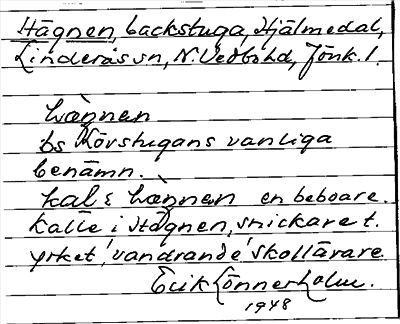 Hägnen, backstuga, Hjälmedal,
Linderås sn, N. Vedbo hd, Jönk. l.
hæ̀ŋnen
bs Körstugans vanliga
benämn.
kal i hæ̀ŋnen en beboare.
Kalle i Hägnen, snickare t.
yrket, 'vandrande' skollärare.
Erik Lönnerholm.
1948